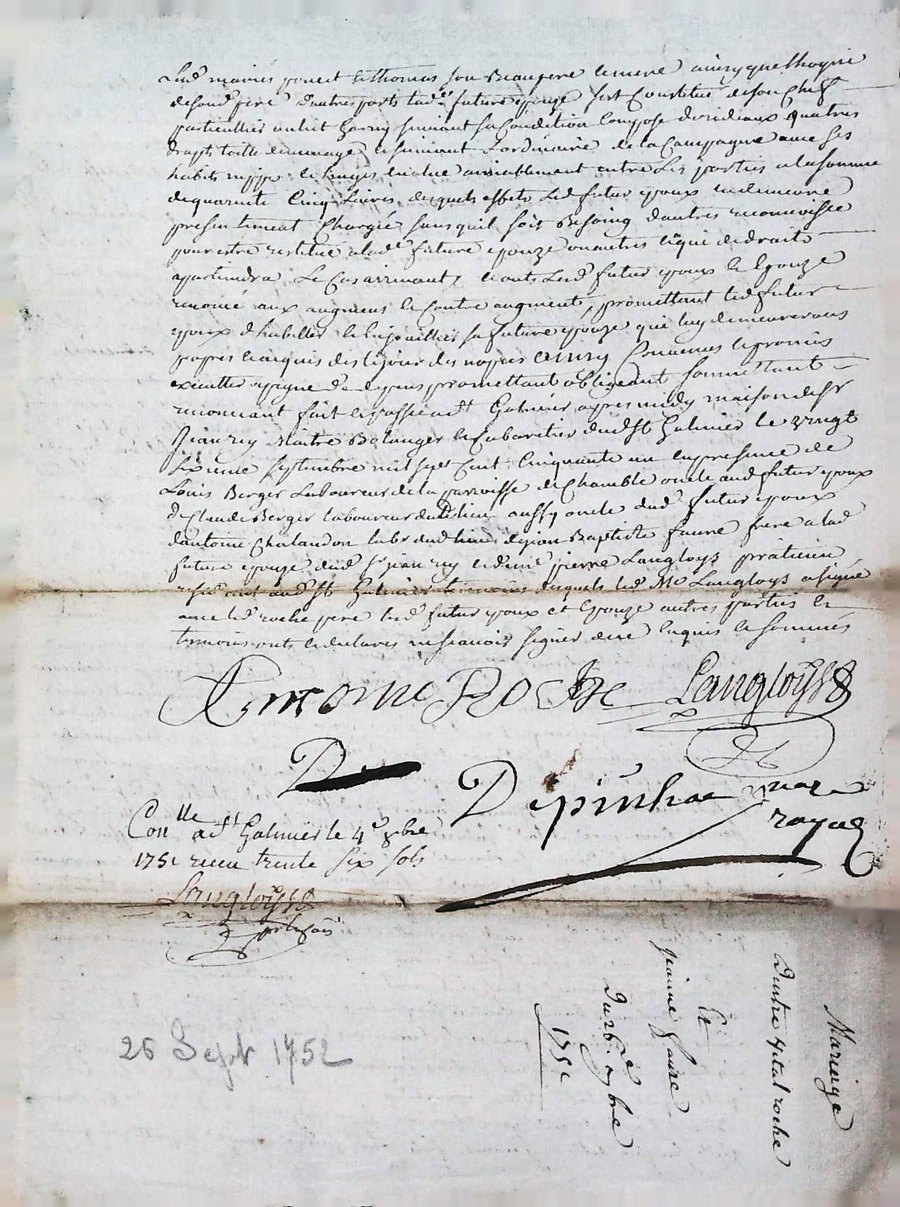 Led. mariés Thomas son Beaupere
de son pere d'autre parts lad. future epouze s'est Constitué de son Chef
particullier un lict garny suivant sa Condition Compose de rideaux quatres
draps toille de menage et suivant l'ordinaire de la Campagne avec ses
habits nippe et linges Evalue amiablement entre les parties a la somme
de quarante Cinq Livres desquels effets Led futur epoux en demeure
presentement Chargée sans quil soit Besoing d'autres reconnoissce
pour estre restitué a lad. future epouze ou autres a qui de droits
apartiendra Le Cas arrivant, Led. futur epoux et Epouze
renonce aux augment et Contre augment, promettant led futur
epoux d'habiller et enjouailler sa future epouze qui luy demeureront
propres et acquis des le jour des nopces Convenus et promis
exécutter a peyne de depens promettant obligeant soumettant
renoncant fait et passé a St Galmier apres midy maison de Sr
Jean rey Maitre Bolanger et Cabaretier dud. St Galmier le vingt
sixieme septembre mil sept Cent Cinquante un en presence de
Louis Berger Laboureur de la parroisse de Chamble oncle aud futur epoux
de Claude Berger laboureur dud lieu aussy oncle dud futur epoux
d'antoine Chalandon labr dud lieu de jean Baptiste faure frere a lad
future epouze dud. Sr jean rey et de me pierre Langloys praticien
resident aud. St Galmier temoins desquels led. Me Langloys a signé
avec led. roche pere led. futur epoux et Epouze autres parties et
temoins ont declares ne scavoir signer de ce enquis et sommés
Antoine Roche Langloys
De
Depinhac
royal
Conlle a St Galmier le 4e 8bre
1751 receu trente six sols
Langloys
Mariage
D'entre vital roche
Et
jeanne faure
Du 26e 7bre
1751
26 Sept 1752